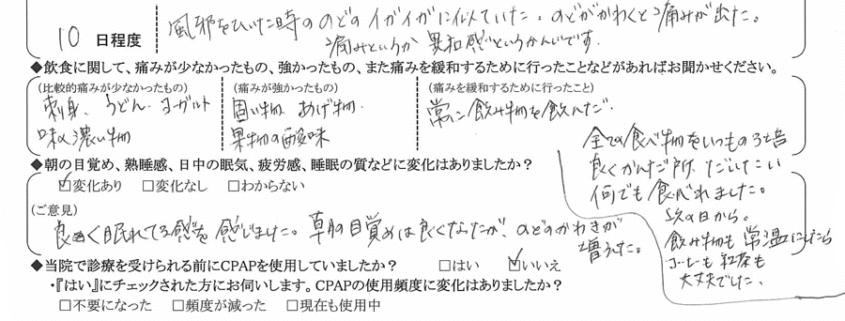 10 日程度
風邪をひいた時ののどのイガイガに似ていた。のどがかわくと痛みが出た。
痛みというか異和感というかんじです。
◆飲食に関して、痛みが少なかったもの、強かったもの、また痛みを緩和するために行ったことなどがあればお聞かせください。
(比較的痛みが少なかったもの)
刺身、うどん、ヨーグルト
味の濃い物
(痛みが強かったもの)
固い物、あげ物、
果物の酸味
(痛みを緩和するために行ったこと)
常に飲み物を飲んだ。
全ての食べ物をいつもの3倍
良くかんだ所、だいたい
何でも食べれました。
次の日から。
飲み物も常温にしたら
コーヒーも紅茶も
大丈夫でした。
◆朝の目覚め、熟睡感、日中の眠気、疲労感、睡眠の質などに変化はありましたか?
☑変化あり □変化なし □わからない
(ご意見)
良く眠れてる感を感じました。朝の目覚めは良くなったが、のどのかわきが
増えた。
◆当院で診療を受けられる前にCPAPを使用していましたか? □はい ☑いいえ
・『はい』にチェックされた方にお伺いします。CPAPの使用頻度に変化はありましたか?
□不要になった □頻度が減った □現在も使用中